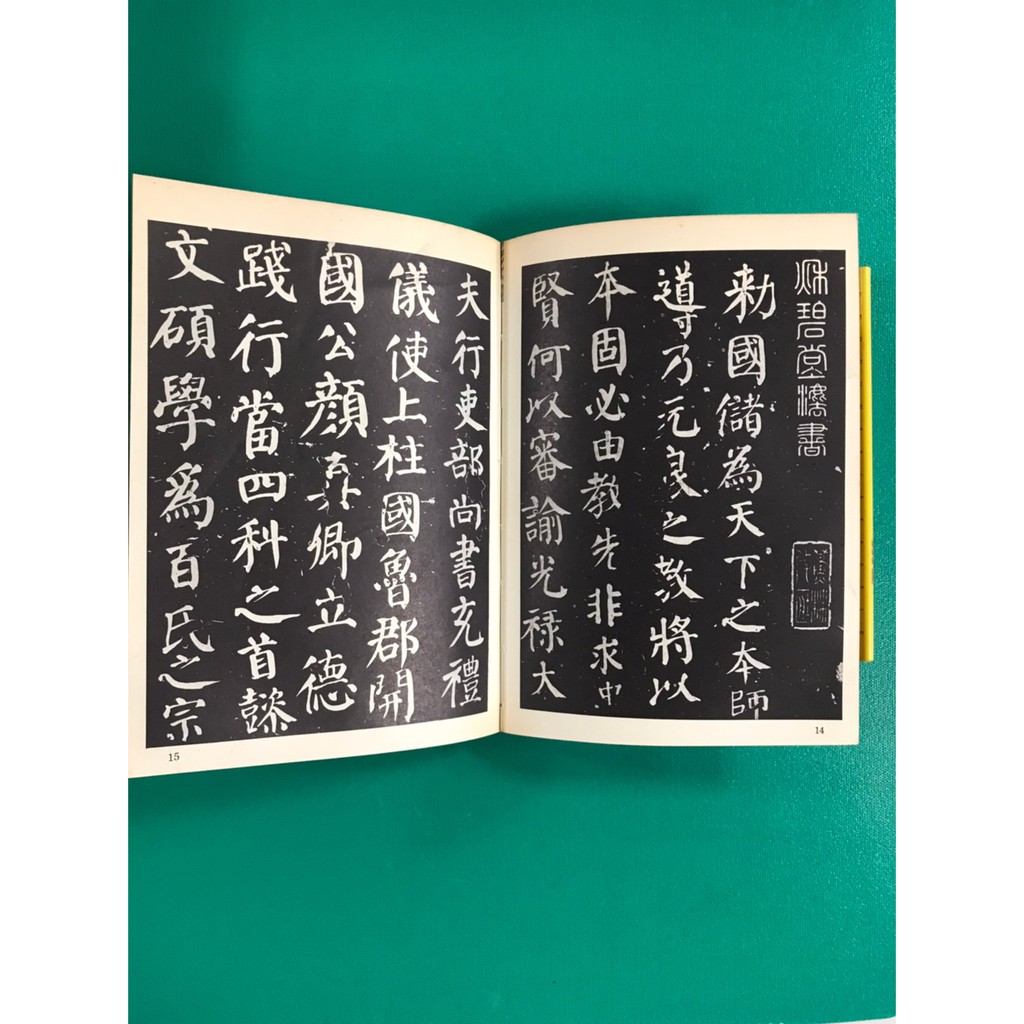 秌碧堂灋書
勑國儲為天下之本師
導乃元良之教將以
本固必由教先非求中
賢何以審諭光祿大
14
夫行吏部尚書充禮
儀使上柱國魯郡開
國公顏真卿立德
踐行當四科之首懿
文碩學爲百氏之宗
15